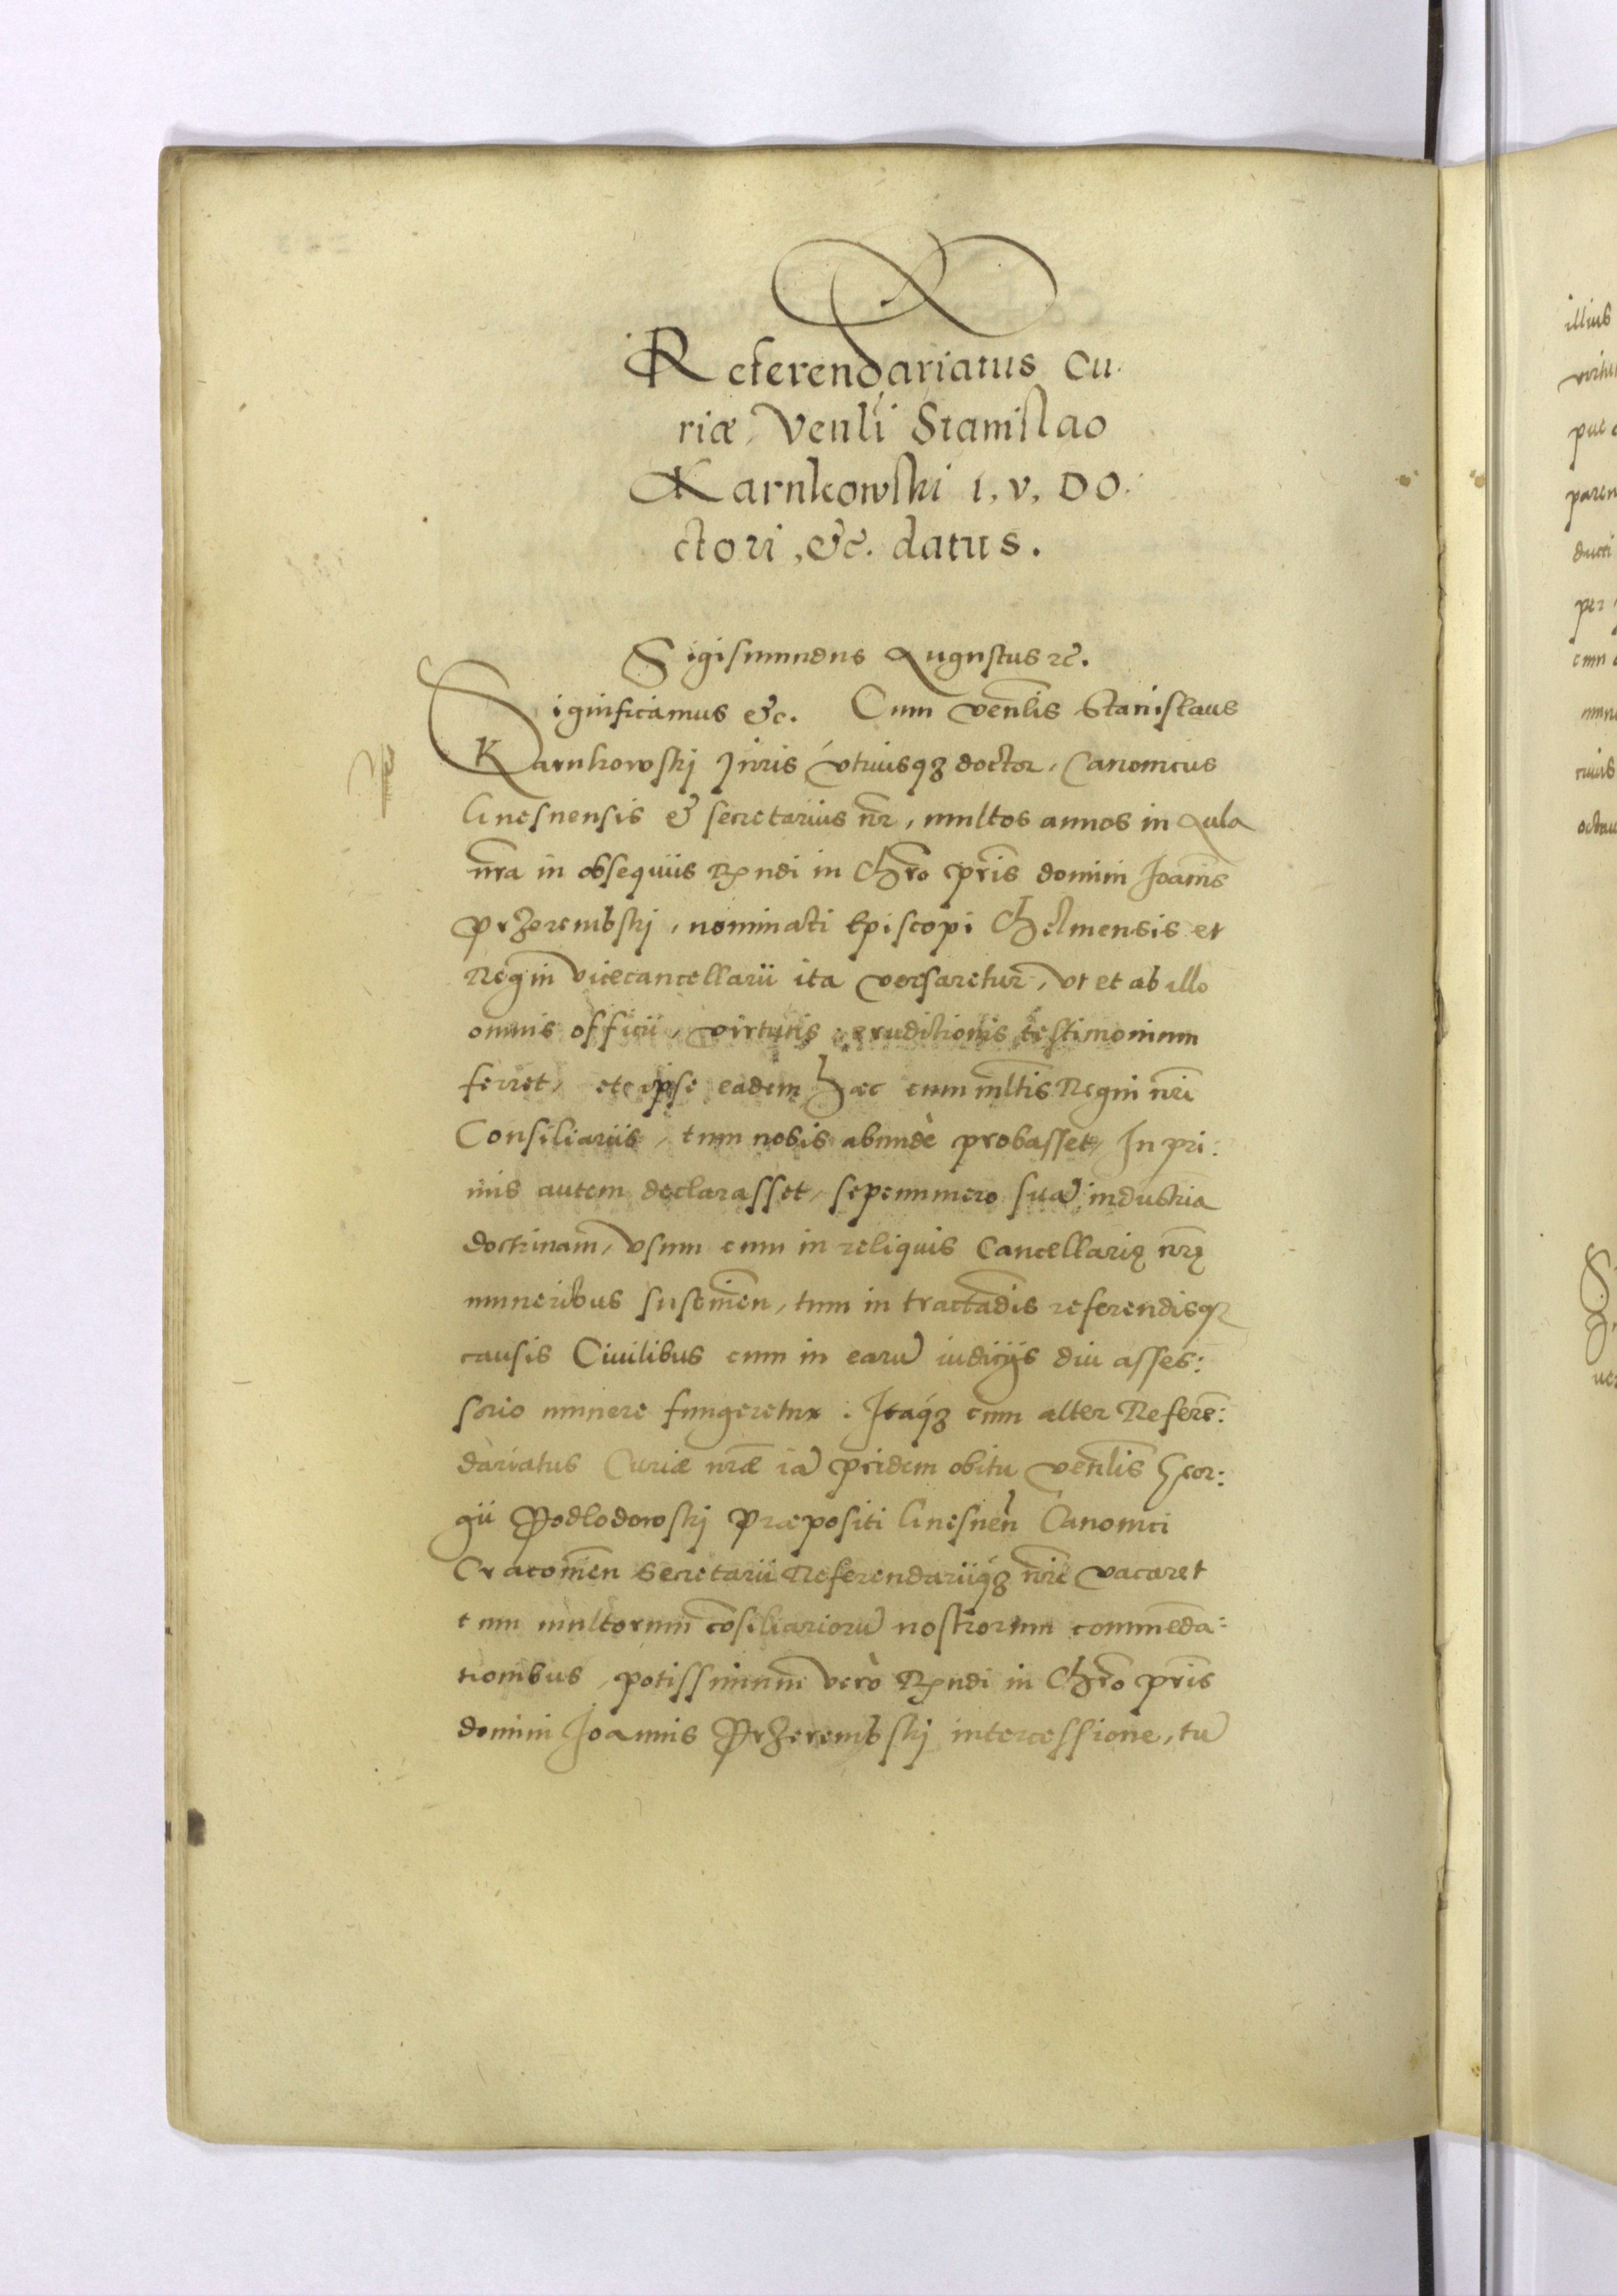 Referendariatus Cu.
riæ, Venli Stanislao
Karnkowski I, V, DO.
ctori, &c. datus.
Sigismundus Augustus &c.
Significamus &c. Cum venlis Stanislaus
Karnkowskj Juris vtriusq3 doctor, Canonicus
Gnesnensis & secretarius nr̄, multos annos in Aula
nr̄a in obsequiis Rndi in Chro pris domini Joannis
Przerembskj, nominati Episcopi Chelmensis et
Regni vicecancellarii ita versaretur, vt et ab illo
omnis officii, virtutis eruditionis testimonium
ferret, et ipse eadem hæc cum mltis Regni nri
Consiliariis, tum nobis abundè probasset, In pri:
mis autem declarasset, sepenumero suā industria
doctrinam, vsum cum in reliquis Cancellarię nrę
muneribus , tum in tractādis referendisq3
causis Ciuilibus cum in earū iudicijs diu asses:
sorio munere fungeretur. Itaq3 cum alter Referē:
dariatus Curiæ nræ iā pridem obitu venlis Geor:
gii Podlodowskj Præpositi Gnesnen̄ Canonici
Cracouien̄ Secretarii Referendariiq3 nri vacaret
tum multorum cōsiliariorū nostrorum commēda:
tionibus, potissimum verò Rndi in Chro pris
domini Joannis Przerembskj intercessione, tū
illius
pue
paren
ducti
per
cum
octau